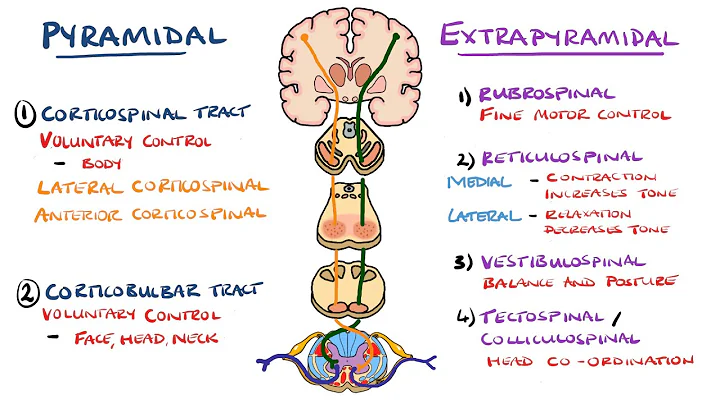 PYRAMIDAL
① CORTICOSPINAL TRACT
VOLUNTARY CONTROL
- BODY
LATERAL CORTICOSPINAL
ANTERIOR CORTICOSPINAL
② CORTICOBULBAR TRACT
VOLUNTARY CONTROL
- FACE, HEAD, NECK
EXTRAPYRAMIDAL
1) RUBROSPINAL
FINE MOTOR CONTROL
2) RETICULOSPINAL
MEDIAL - CONTRACTION
INCREASES TONE
LATERAL - RELAXATION
DECREASES TONE
3) VESTIBULOSPINAL
BALANCE AND POSTURE
4) TECTOSPINAL /
COLLICULOSPINAL
HEAD CO-ORDINATION